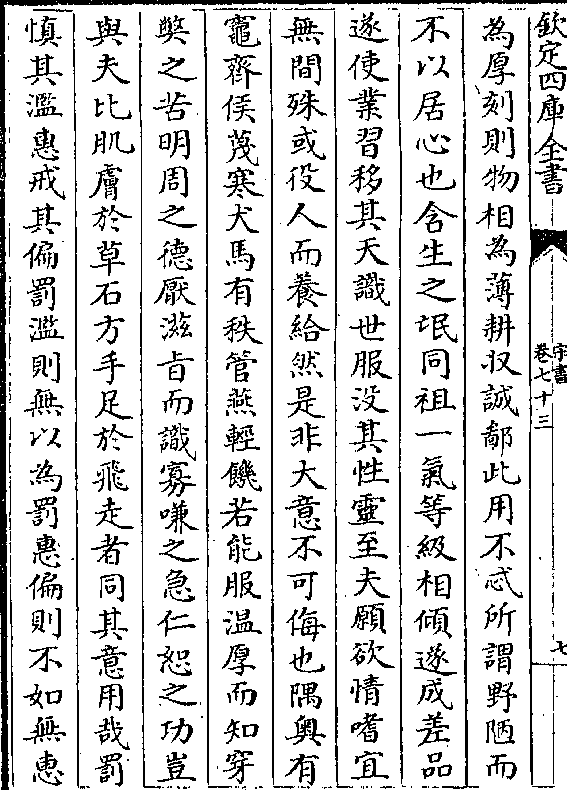 欽定四庫全書
宋書
卷七十三
七
為厚刻則物相為薄耕收誠鄙此用不忒所謂野陋而
不以居心也含生之氓同祖一氣等級相傾遂成差品
遂使業習移其天識世服没其性靈至夫願欲情嗜宜
無間殊或役人而養給然是非大意不可侮也隅奥有
竈齊侯蔑寒犬馬有秩管燕輕饑若能服温厚而知穿
弊之苦明周之德厭滋旨而識寡嗛之急仁恕之功豈
與夫比肌膚於草石方手足於飛走者同其意用哉罰
慎其濫惠戒其偏罰濫則無以為罰惠偏則不如無惠